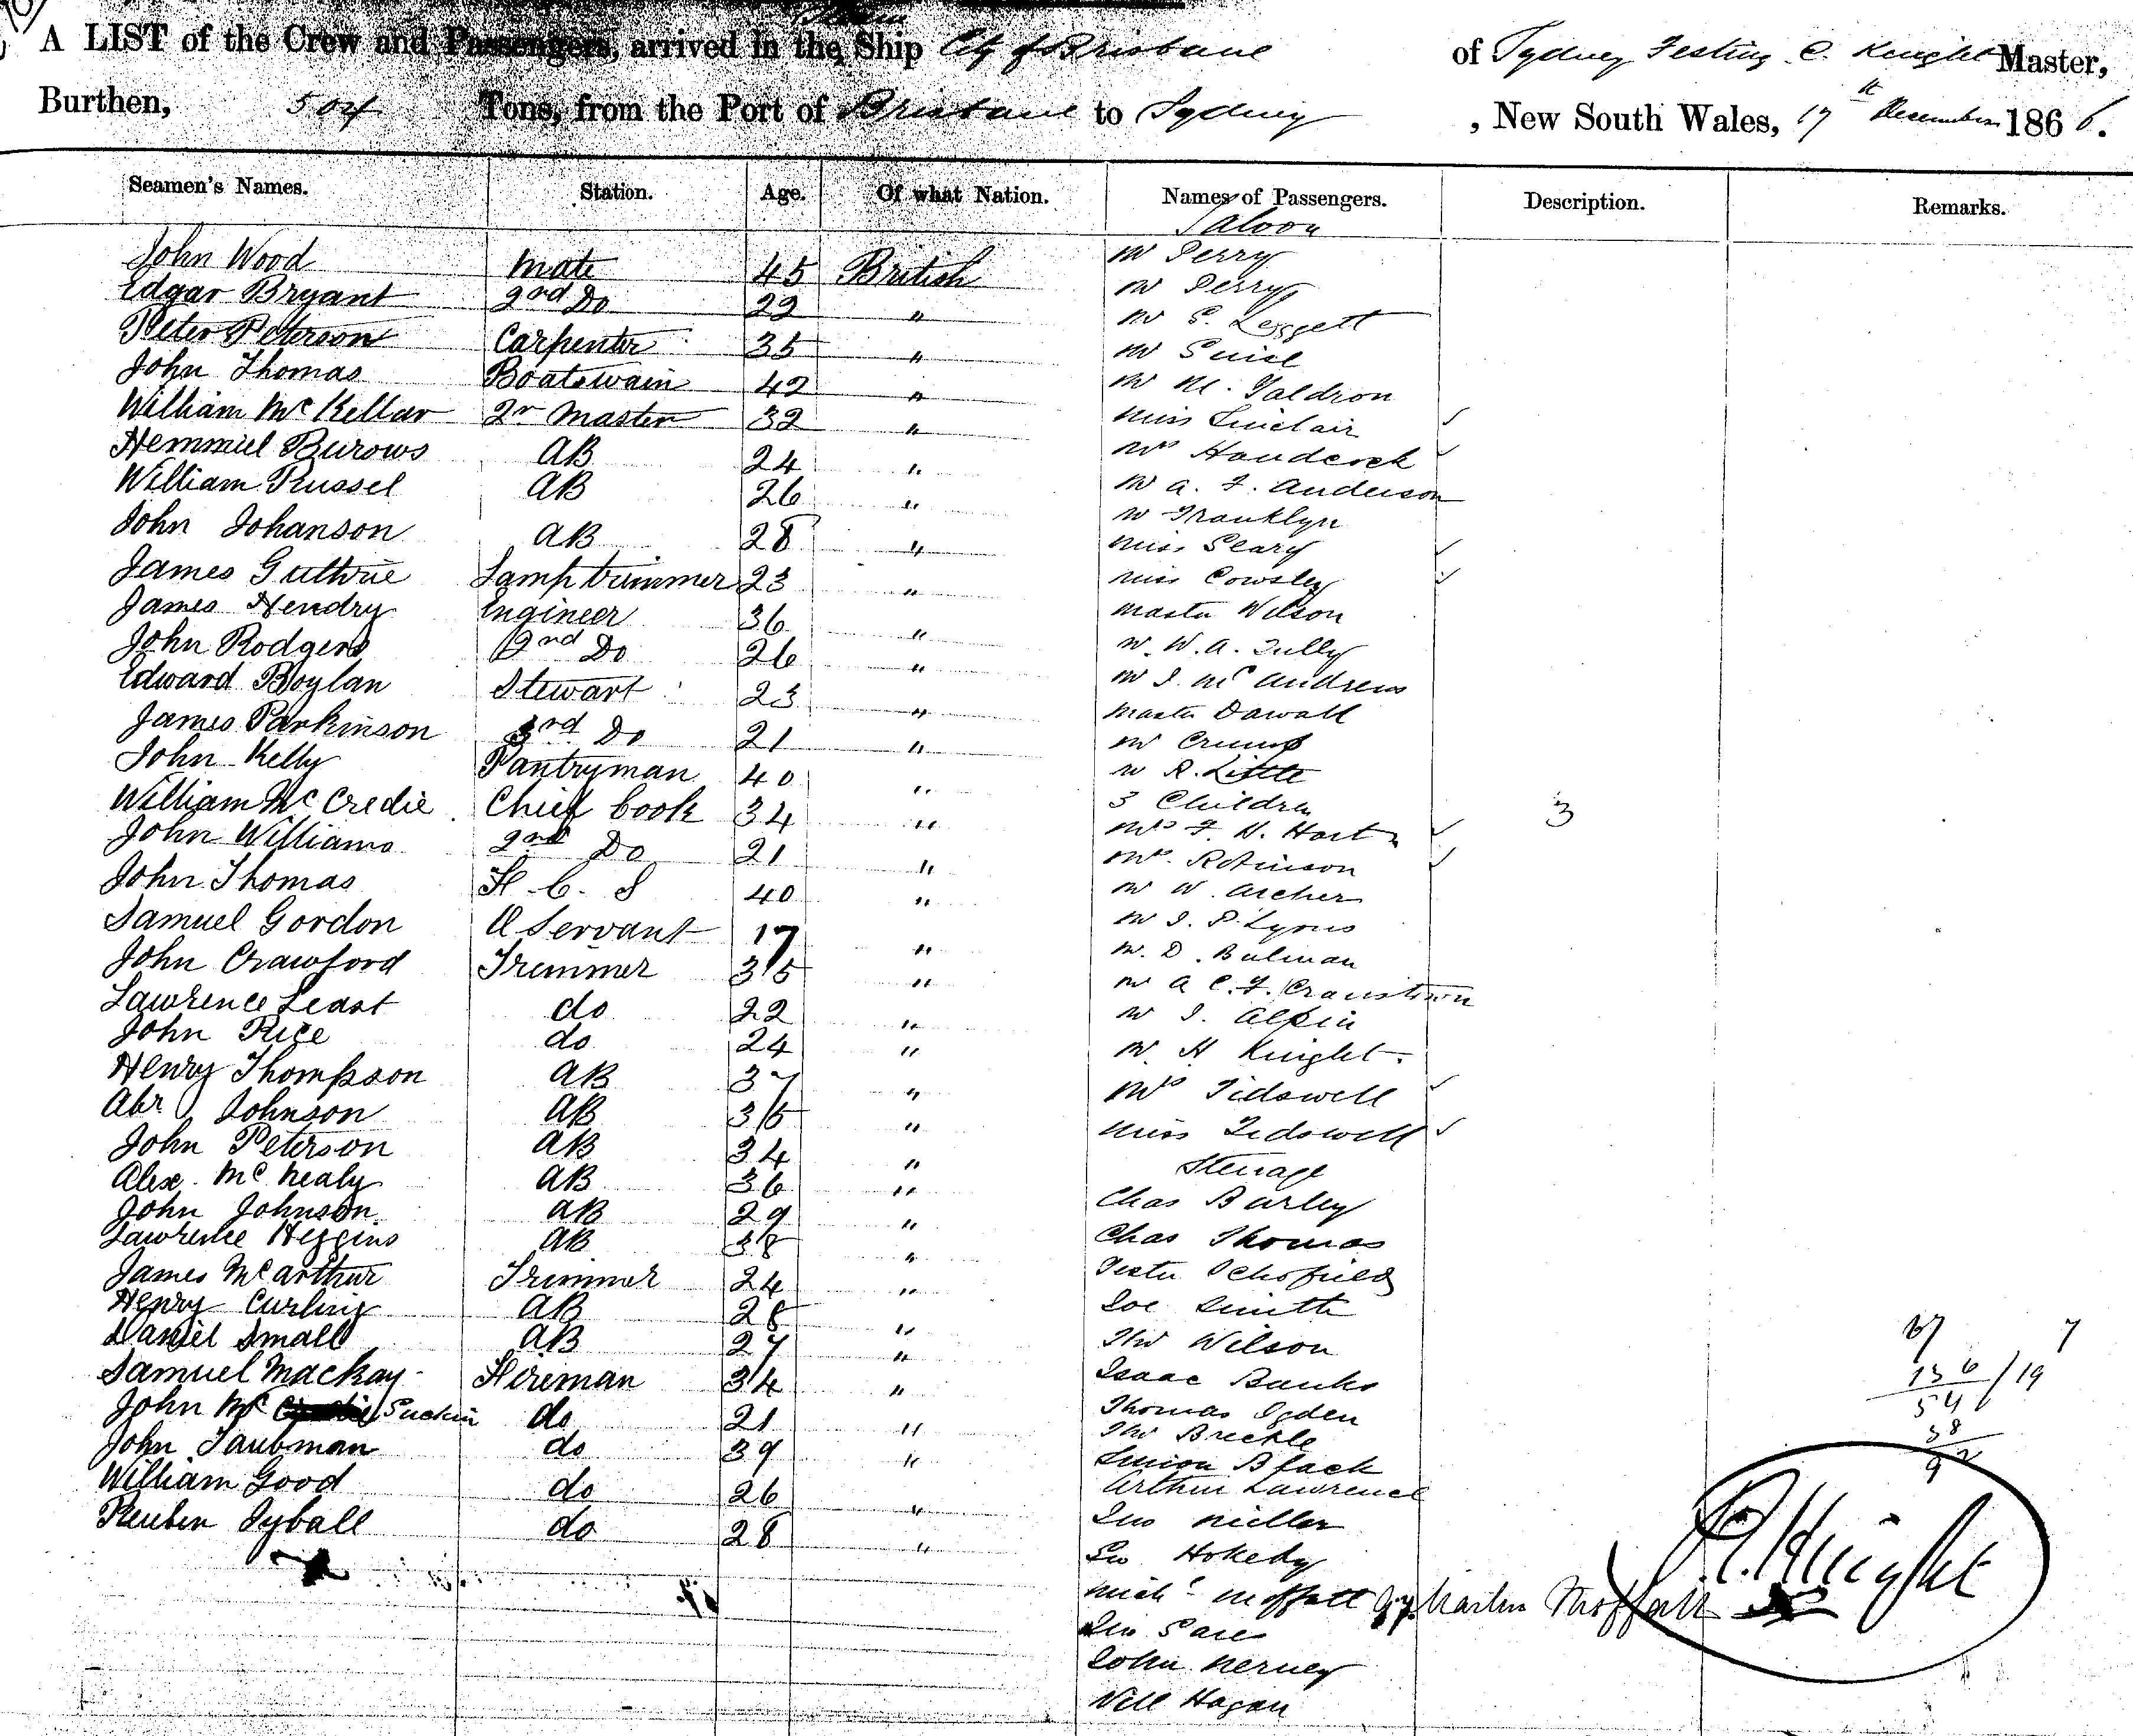 A LIST of the Crew and Passengers, arrived in the Ship City of Brisbane of Sydney Testing C. Knight Master,
Burthen, 504 Tons, from the Port of Brisbane to Sydney, New South Wales, 17th December 1866.
Seamen's Names. Station. Age. Of what Nation. Names of Passengers. Description. Remarks.
Saloon
John Wood Mate 45 British Mr Perry
Edgar Bryant 2nd Do 22 " Mr Perry
Peter Peterson Carpenter 35 " Mr G. Leggett
John Thomas Boatswain 42 " Mr
William McKellar 2r Master 32 " Mr M. Galdron
Hemmiel Burows AB 24 " Miss Sinclair
William Russel AB 26 " Mrs Handcock
John Johanson AB 28 " Mr A. F. Anderson
James Guthrie Lamptrimmer 23 " Mr Franklyn
James Hendry Engineer 36 " Miss Geary
John Rodgers 2nd Do 26 " Miss Cowsley
Edward Boylan Stewart 23 " Master Wilson
James Parkinson 3rd Do 21 " Mr W. A. Tully
John Kelly Pantryman 40 " Mr J. McAndrews
William McCredie Chief Cook 34 " Master Dowall
John Williams 2nd Do 21 " Mr Crump
John Thomas F. C. S 40 " Mr R. Little
Samuel Gordon U Servant 17 " 3 Children 3
John Crawford Trimmer 35 " Mrs F. H. Hart
Lawrence Least do 22 " Mrs Robinson
John Rice do 24 " Mr W. Archer
Henry Thompson AB 37 " Mr J. P. Lyons
Abr Johnson AB 35 " Mr D. Bulman
John Peterson AB 34 " Mr A C. F. Cranstown
Alex. McNealy AB 36 " Mr J. Alpin
John Johnson AB 29 " Mr H Knight
Lawrence Heggins AB 38 " Mrs Tidswell
James McArthur Trimmer 24 " Miss Tidswell
Steerage
Henry Curling AB 28 " Chas Burley
Daniel Small AB 27 " Chas Thomas
Samuel Mackay Fireman 34 " Peter Schofield
John Mc Suckin do 21 " Joe Smith
John Taubman do 39 " Thos Wilson
William Good do 26 " Isaac Banks
Reuben Tyball do 28 " Thomas Ogden
Thos Breckle
Simion Black
Arthur Lawrence
Jno Miller
Geo Hokeby
Michl Moffatt Charles Moffatt
Jno
John Nerney
Will Hagan
7
136/19
54
38
92
C. Knight